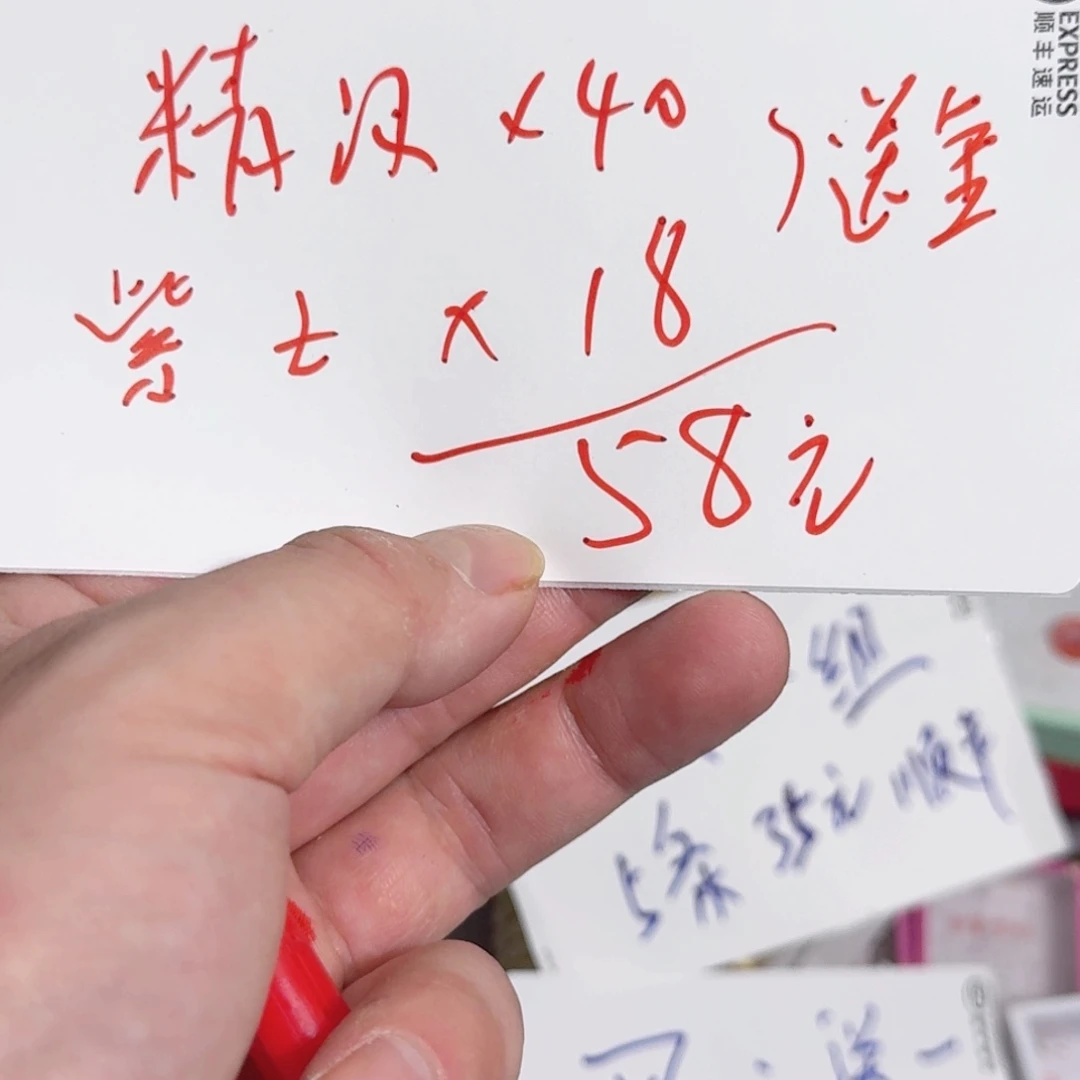 精汉×40 送金
紫七×18
58元
EXPRESS
顺丰速运
组
5条 35元 顺丰
送一